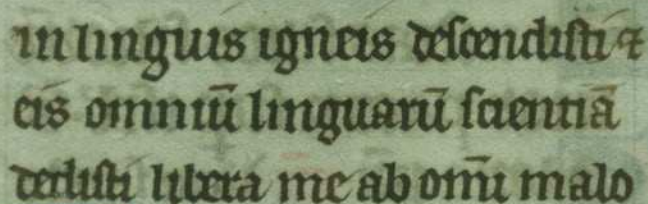 in linguis igneis descendisti ⁊
eis omniū linguarū scientiā
dedisti libera me ab om̄i malo